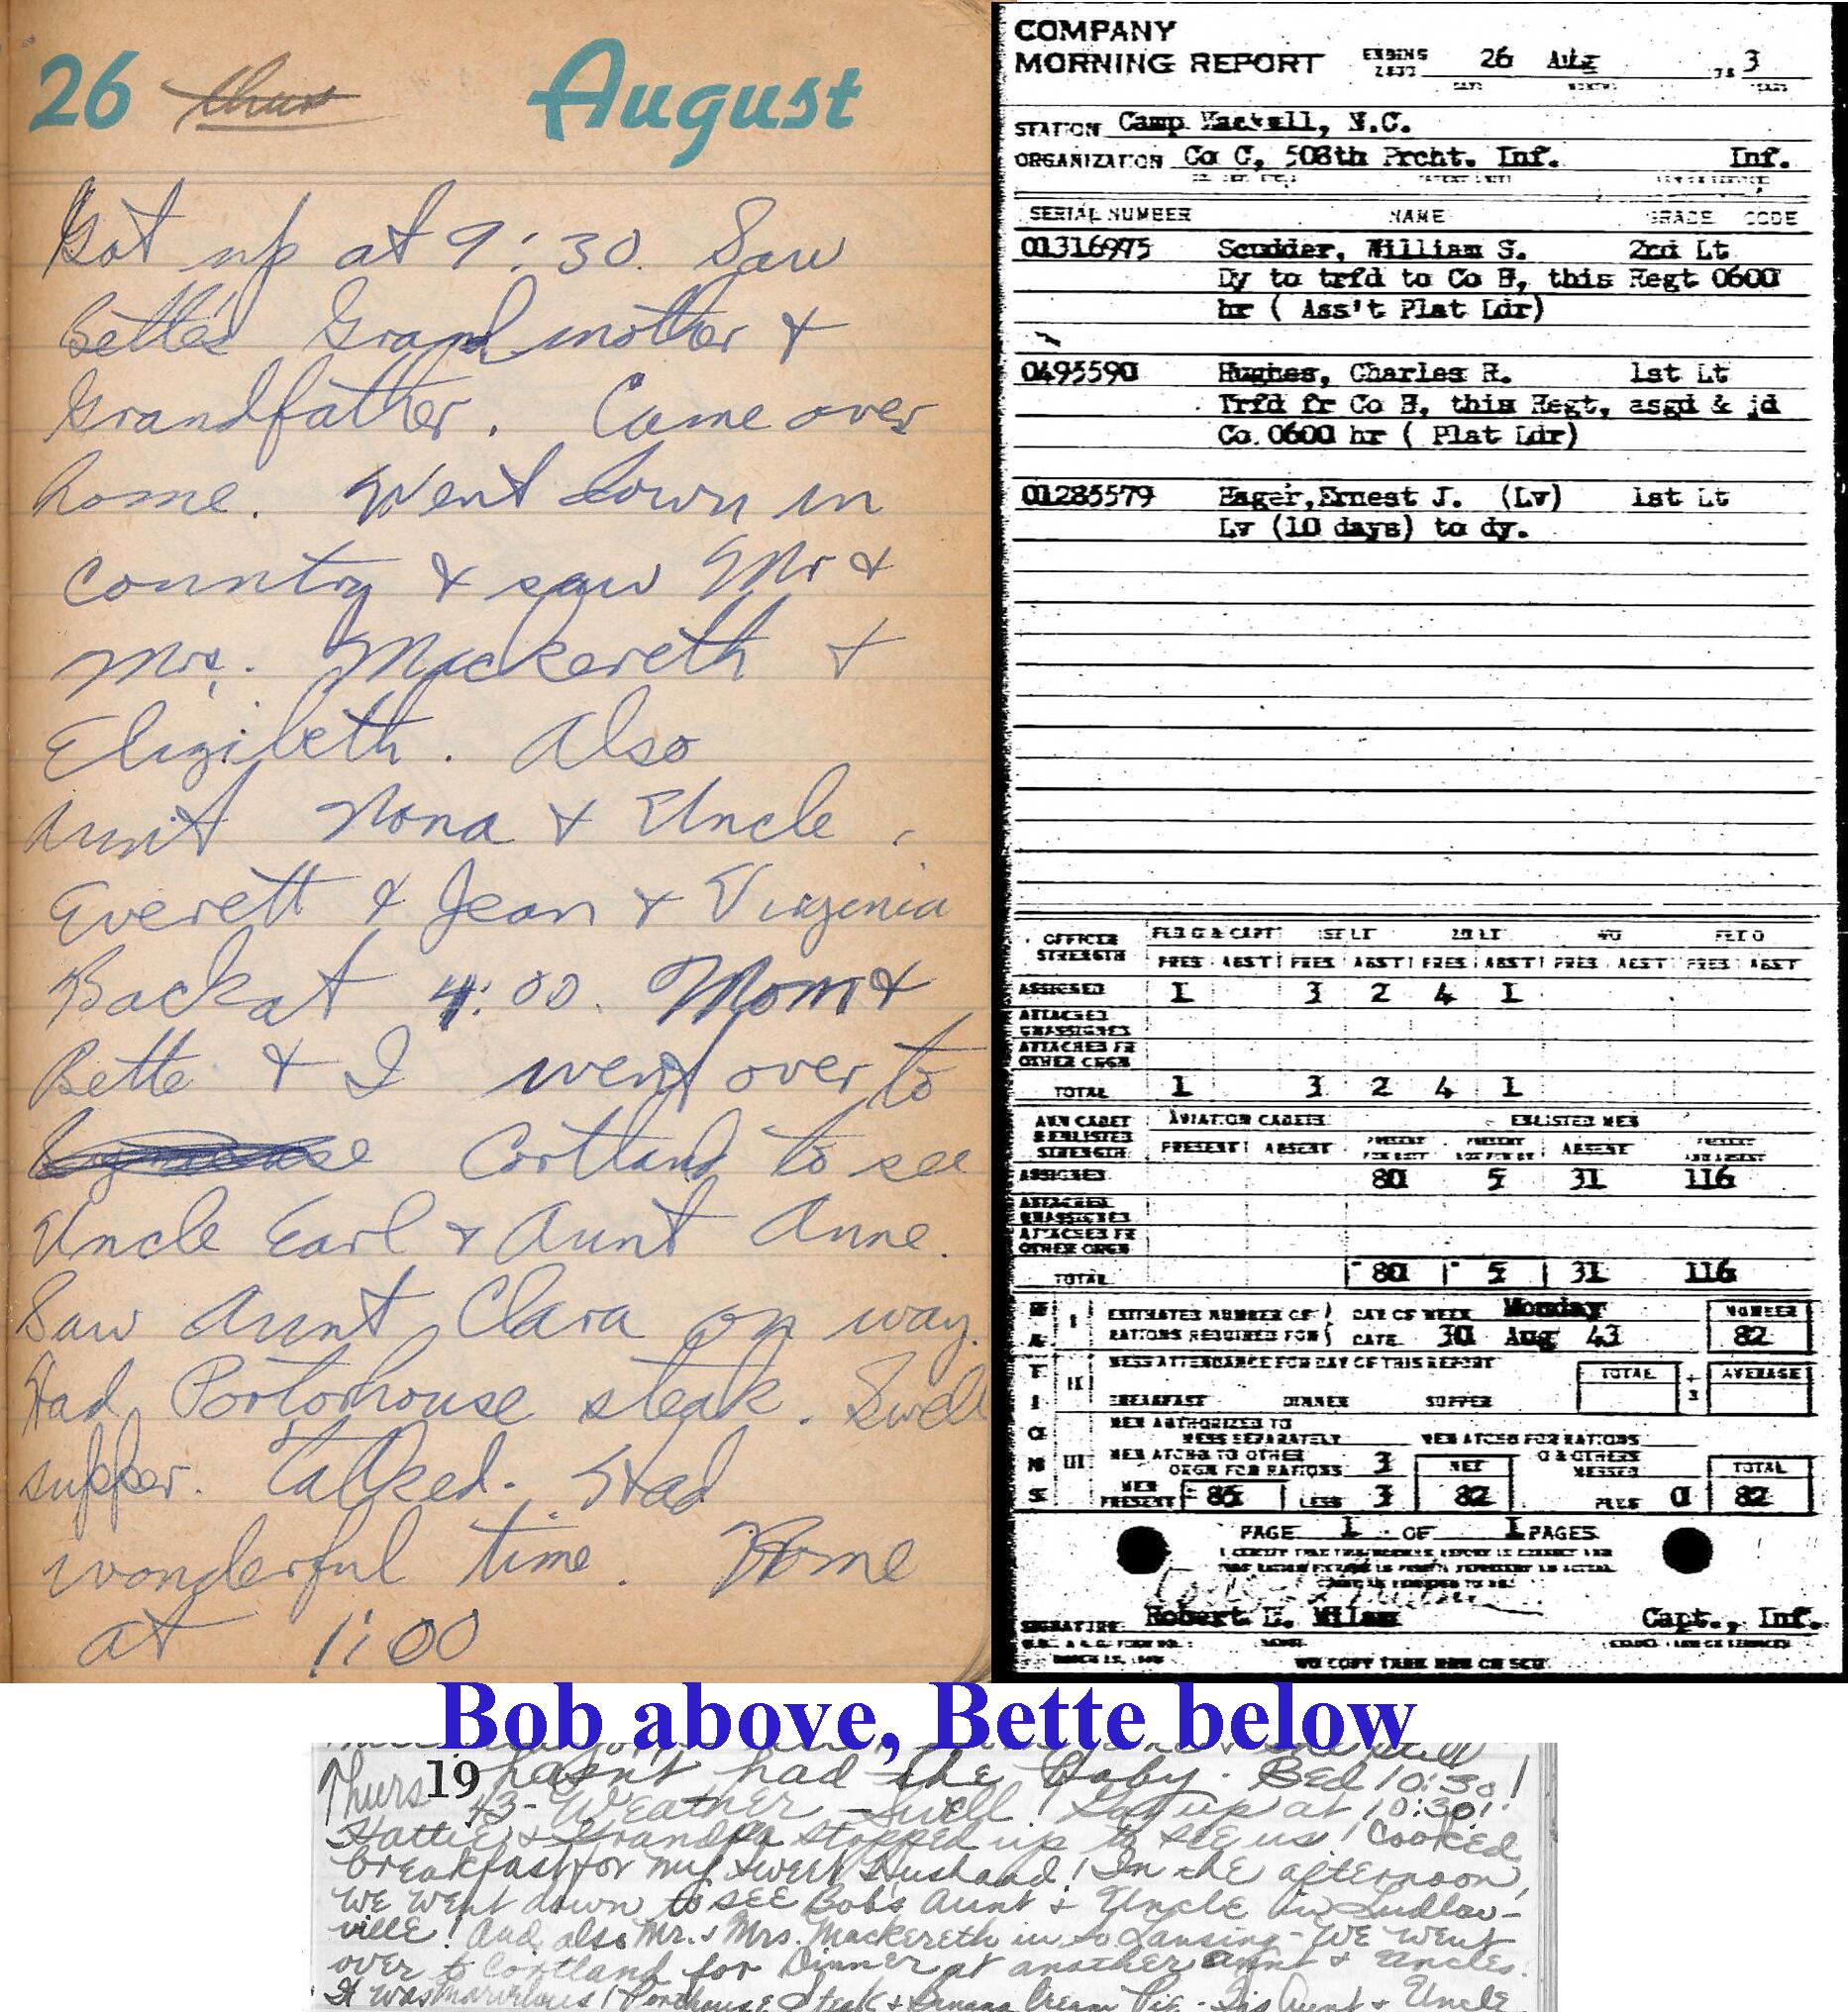 26 Thur August
Got up at 9:30. Saw
Bette's Grandmother &
Grandfather. Came over
home. Went down in
country & saw Mr &
Mrs. Mackereth &
Elizibeth. Also
Aunt Nona & Uncle
Everett & Jean & Virginia
Back at 4:00. Mom &
Bette & I went over to
Syracuse Cortland to see
Uncle Earl & Aunt Anne.
Saw Aunt Clara on way.
Had Portorhouse steak. Swell
supper. Talked. Had
wonderful time. Home
at 1:00
COMPANY
MORNING REPORT ENDING 26 Aug 3
STATION Camp Mackall, N.C.
ORGANIZATION Co C, 508th Prcht. Inf. Inf.
SERIAL NUMBER NAME GRADE CODE
01316975 Scudder, William S. 2nd Lt
Dy to trfd to Co H, this Regt 0600
hr ( Ass't Plat Ldr)
0495590 Hughes, Charles R. 1st Lt
Trfd fr Co H, this Regt, asgd & jd
Co. 0600 hr ( Plat Ldr)
01285579 Hager, Ernest J. (Lv) 1st Lt
Lv (10 days) to dy.
OFFICER STRENGTH FLD O & CAPT 1ST LT 2D LT WO FLT O
PRES ABST PRES ABST PRES ABST PRES ABST PRES ABST
ASSIGNED 1 3 2 4 1
ATTACHED UNASSIGNED
ATTACHED FR OTHER ORGN
TOTAL 1 3 2 4 1
AVN CADET & ENLISTED STRENGTH AVIATION CADETS ENLISTED MEN
PRESENT ABSENT PRESENT FOR DUTY PRESENT NOT FOR DY ABSENT PRESENT AND ABSENT
ASSIGNED 80 5 31 116
ATTACHED UNASSIGNED
ATTACHED FR OTHER ORGN
TOTAL 80 5 31 116
I ESTIMATED NUMBER OF DAY OF WEEK Monday NUMBER
RATIONS REQUIRED FOR DATE 30 Aug 43 82
II MESS ATTENDANCE FOR DAY OF THIS REPORT TOTAL ÷ 3 AVERAGE
BREAKFAST DINNER SUPPER
MEN AUTHORIZED TO
MESS SEPARATELY MEN ATCHD FOR RATIONS
III MEN ATCHD TO OTHER ORGN FOR RATIONS 3 NET O & OTHERS MESSED TOTAL
MEN PRESENT 85 LESS 3 82 PLUS 0 82
PAGE 1 OF 1 PAGES
SIGNATURE Robert L. Milam Capt., Inf.
Bob above, Bette below
hasn't had the baby. Bed 10:30!
Thurs 19 43 - Weather - Swell! Got up at 10:30!
Hattie & Grandpa stopped up to see us! Cooked
breakfast for my sweet husband! In the afternoon,
we went down to see Bob's Aunt & Uncle in Ludlow-
ville! And also Mr. & Mrs. Mackereth in So. Lansing - We went
over to Cortland for Dinner at another aunt & uncles.
It was marvelous! Porterhouse Steak & Banana Cream Pie - His Aunt & Uncle